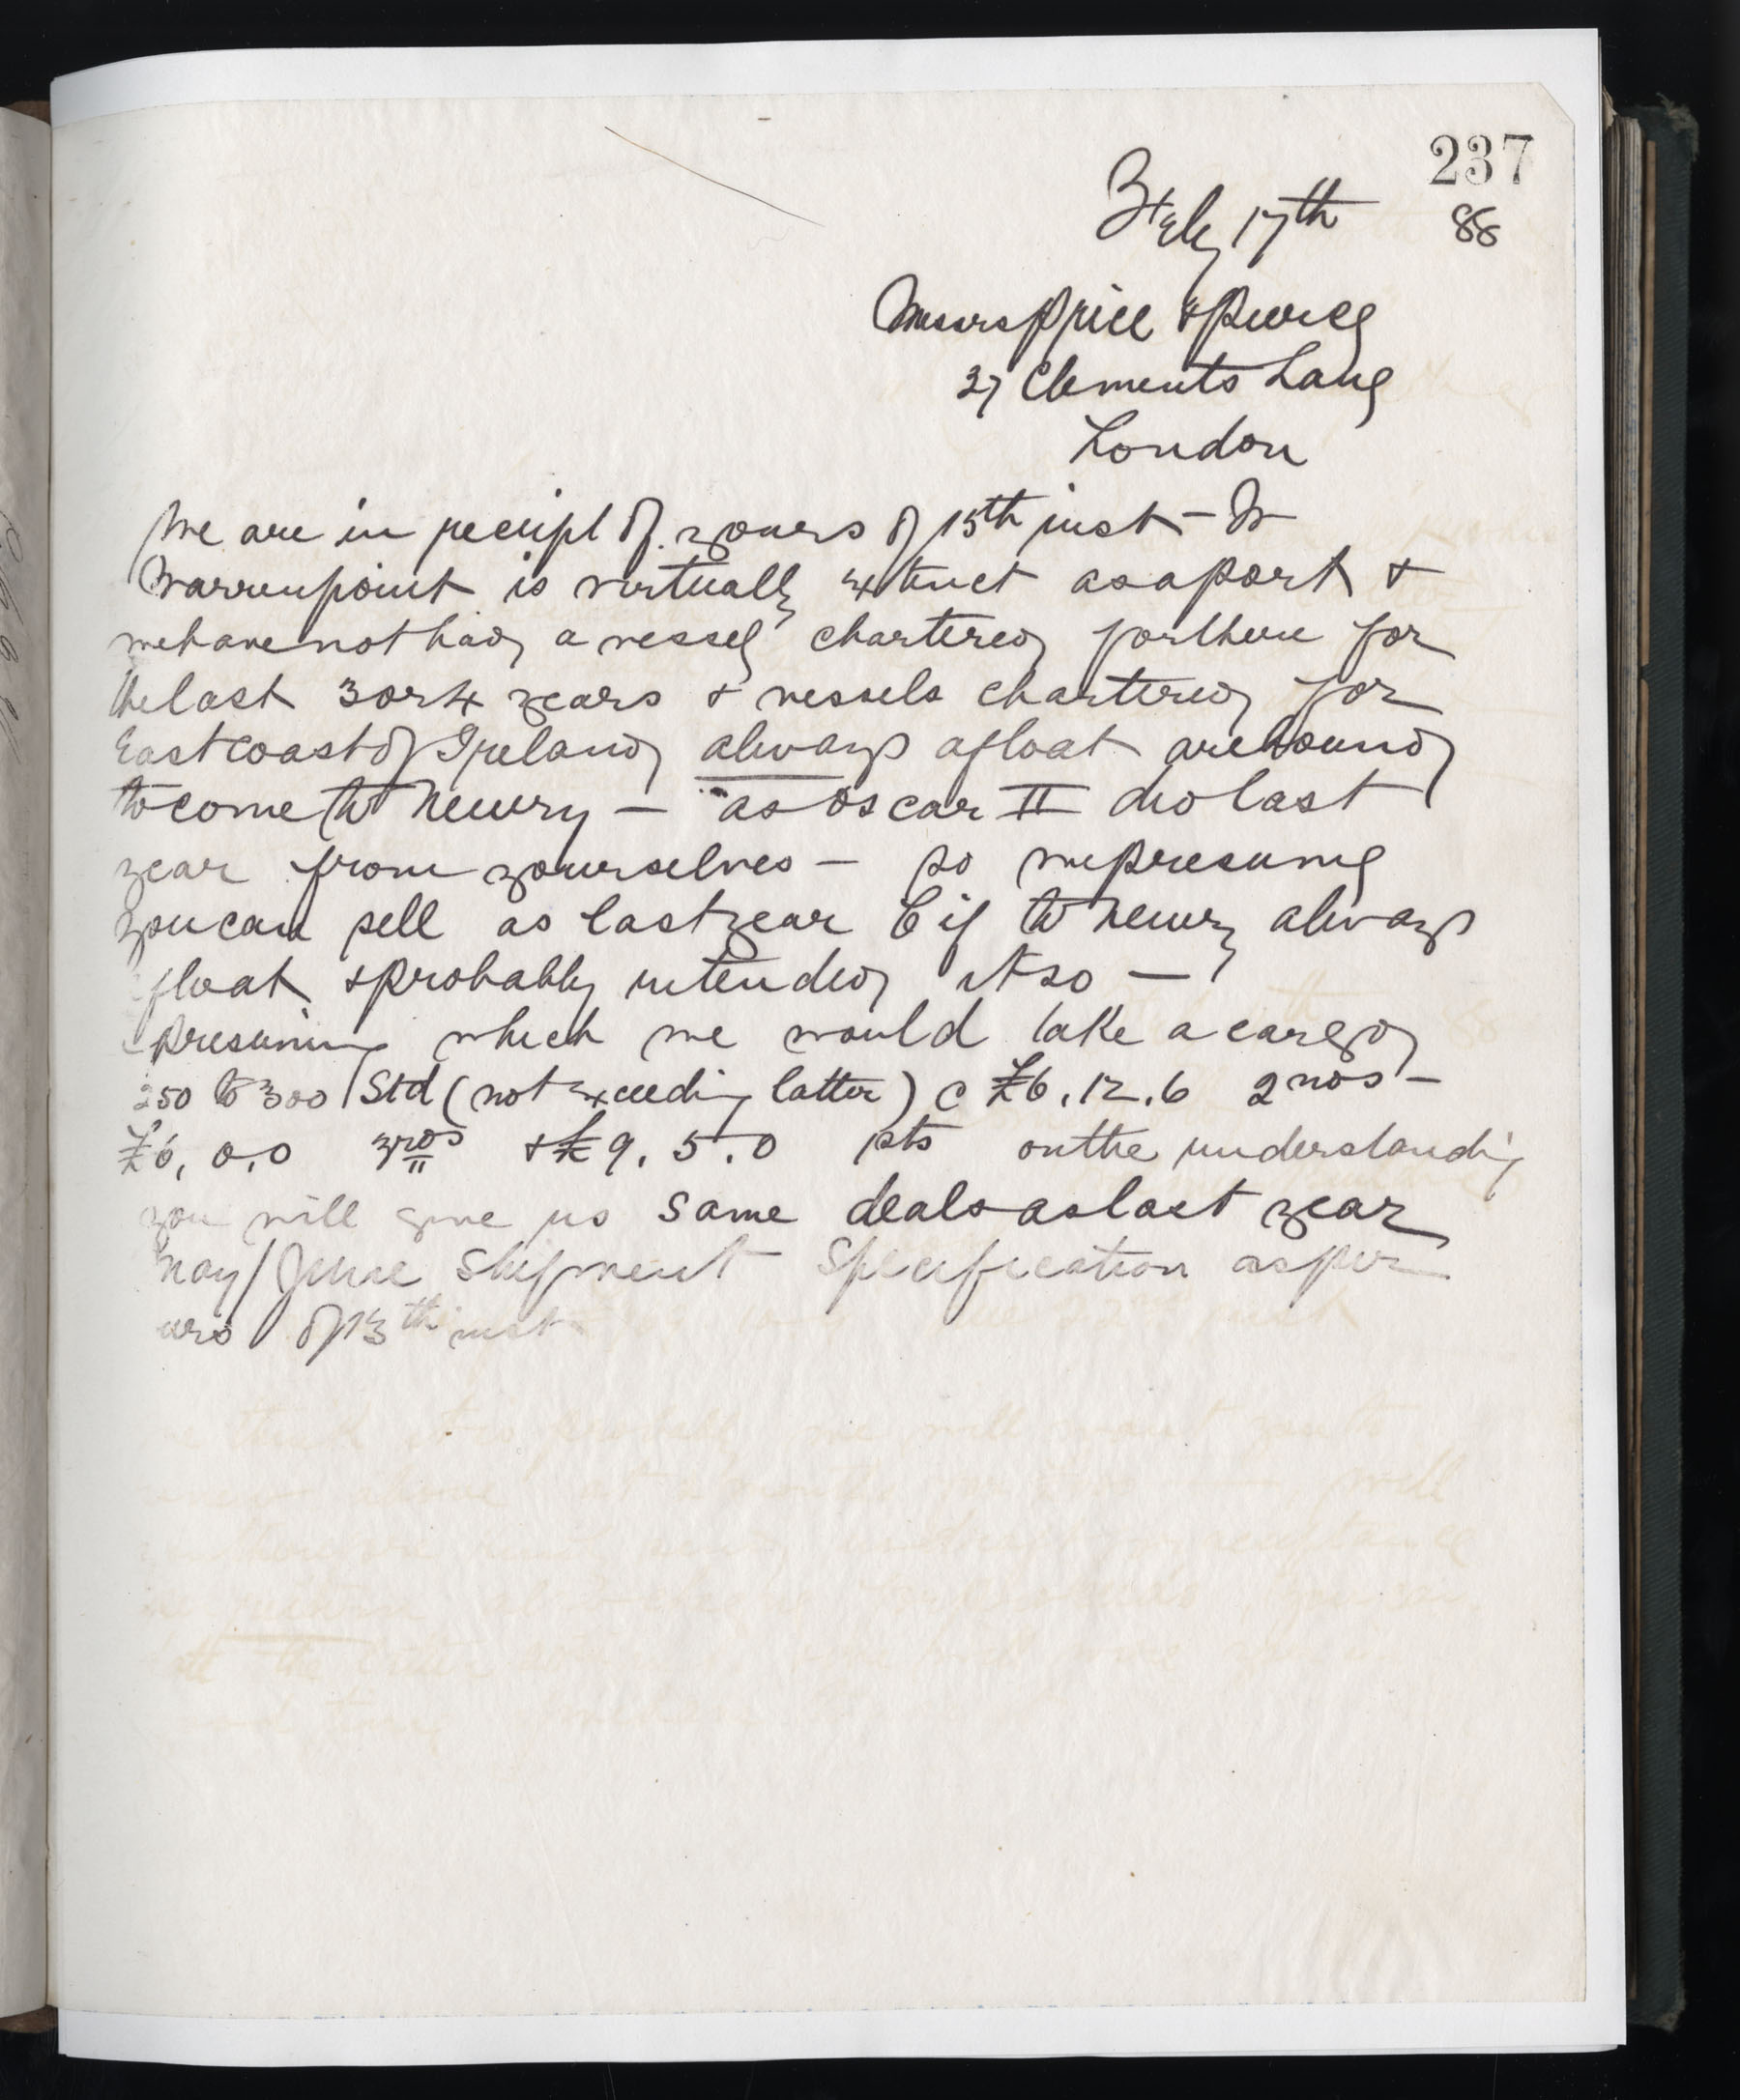 237
Feby 17th 88
Messrs Price & Pierce
27 Clements Lane
London
We are in receipt of yours of 15th inst –
Warrenpoint is virtually extinct as a port &
we have not had a vessel chartered for there for
the last 3 or 4 years & vessels chartered for
East coast of Ireland always afloat are bound
to come to Newry – as Oscar II did last
year from yourselves – so we presume
you can sell as last year C i f to Newry always
afloat & probably intended it so –
presuming which we would take a cargo
250 to 300 Std (not exceeding latter) @ £6.12.6 2nds –
£6.0.0 3rds & £9.5.0 1sts on the understanding
you will give us same deals as last year
May/June shipment Specification as per
ours of 13th inst